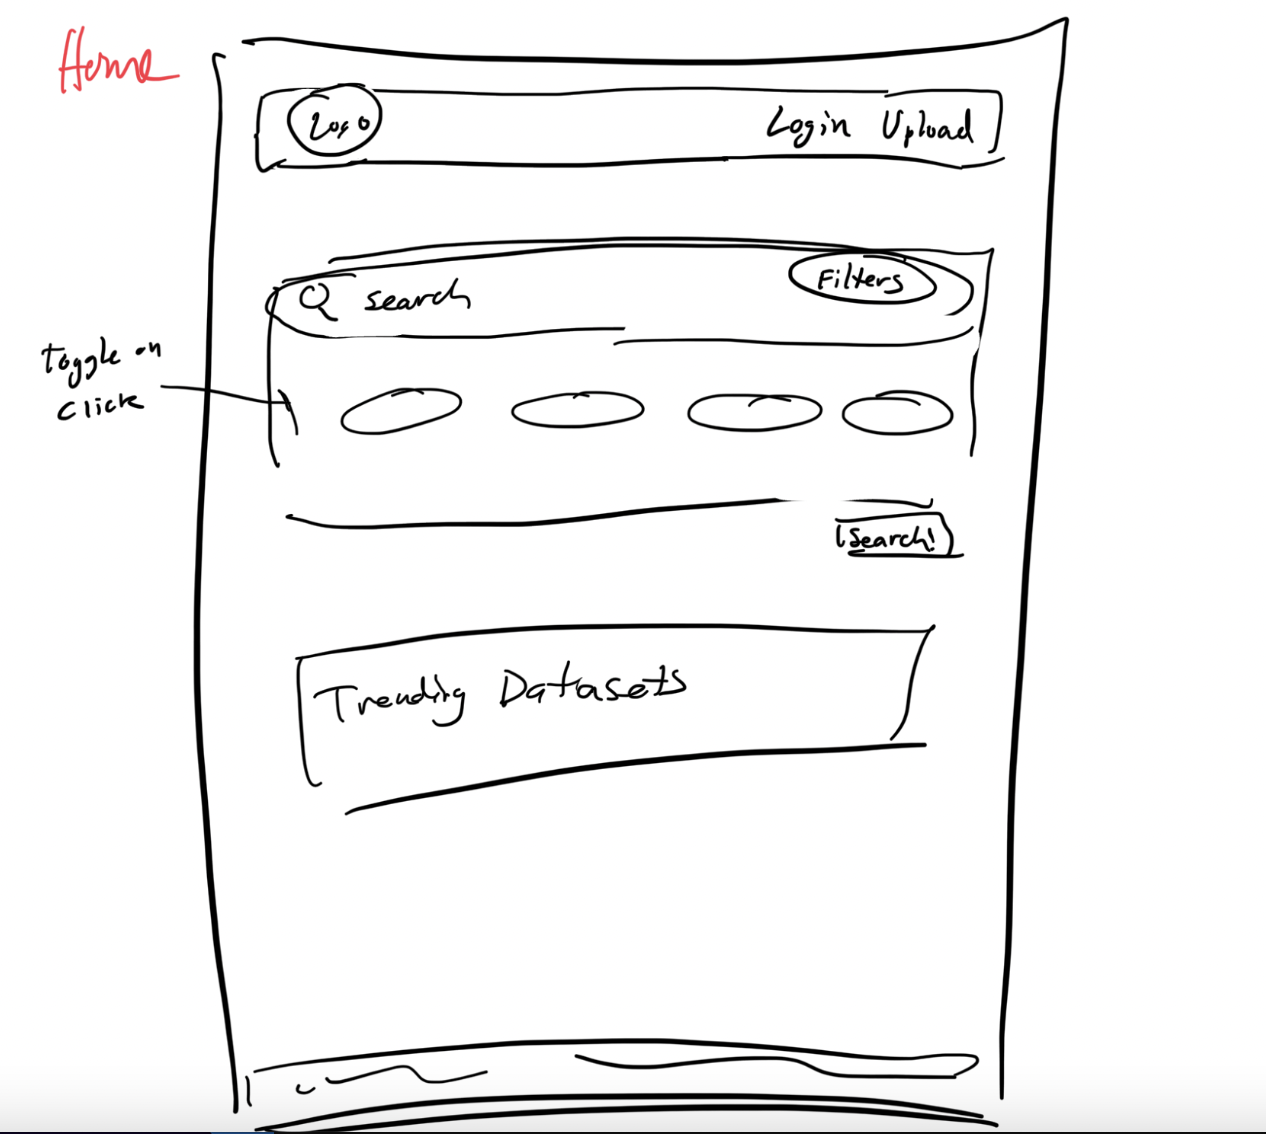 Home
Logo
Login Upload
search
Filters
Toggle on
Click
Search!
Trending Datasets